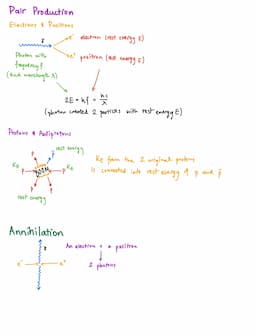 Pair Production
Electrons & Positrons
γ
e⁻ electron (rest energy E)
e⁺ positron (rest energy E)
Photon with
frequency f
(and wavelength λ)
2E = hf = hc/λ
(photon created 2 particles with rest energy E)
Protons & Antiprotons
rest energy
KE
KE
P
P
rest energy
KE from the 2 original protons
is converted into rest energy of p and p̄
Annihilation
γ
An electron + a positron
e⁻
e⁺
2 photons